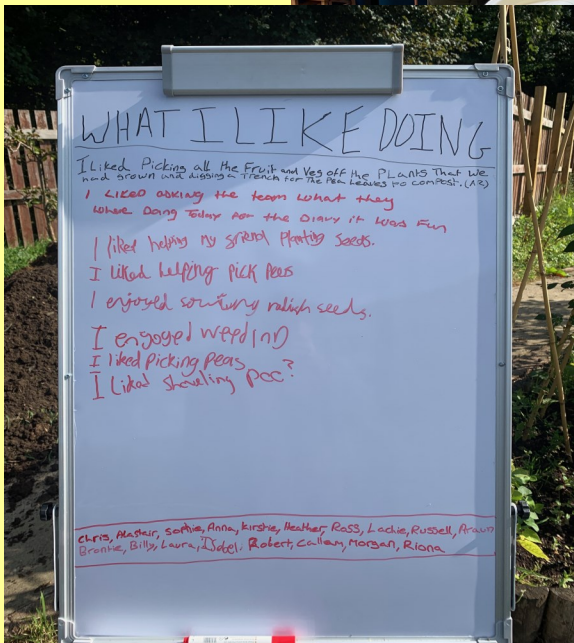 WHAT I LIKE DOING
I Liked Picking all the Fruit and Veg off the PLants That We
had grown and digging a Trench for The Pea Leaves to compost. (AR)
I Liked asking the team what they
where Doing Today for the Diary it was Fun
I liked helping my friend Planting seeds.
I liked helping pick Peas
I enjoyed radish seeds.
I enjoyed weeding
I liked Picking peas
I Liked shoveling poo?
Chris, Alastair, Sophie, Anna, Kirstie, Heather, Ross, Lachie, Russell,
Brontie, Billy, Laura, Isobel. Robert, Callum, Morgan, Riona